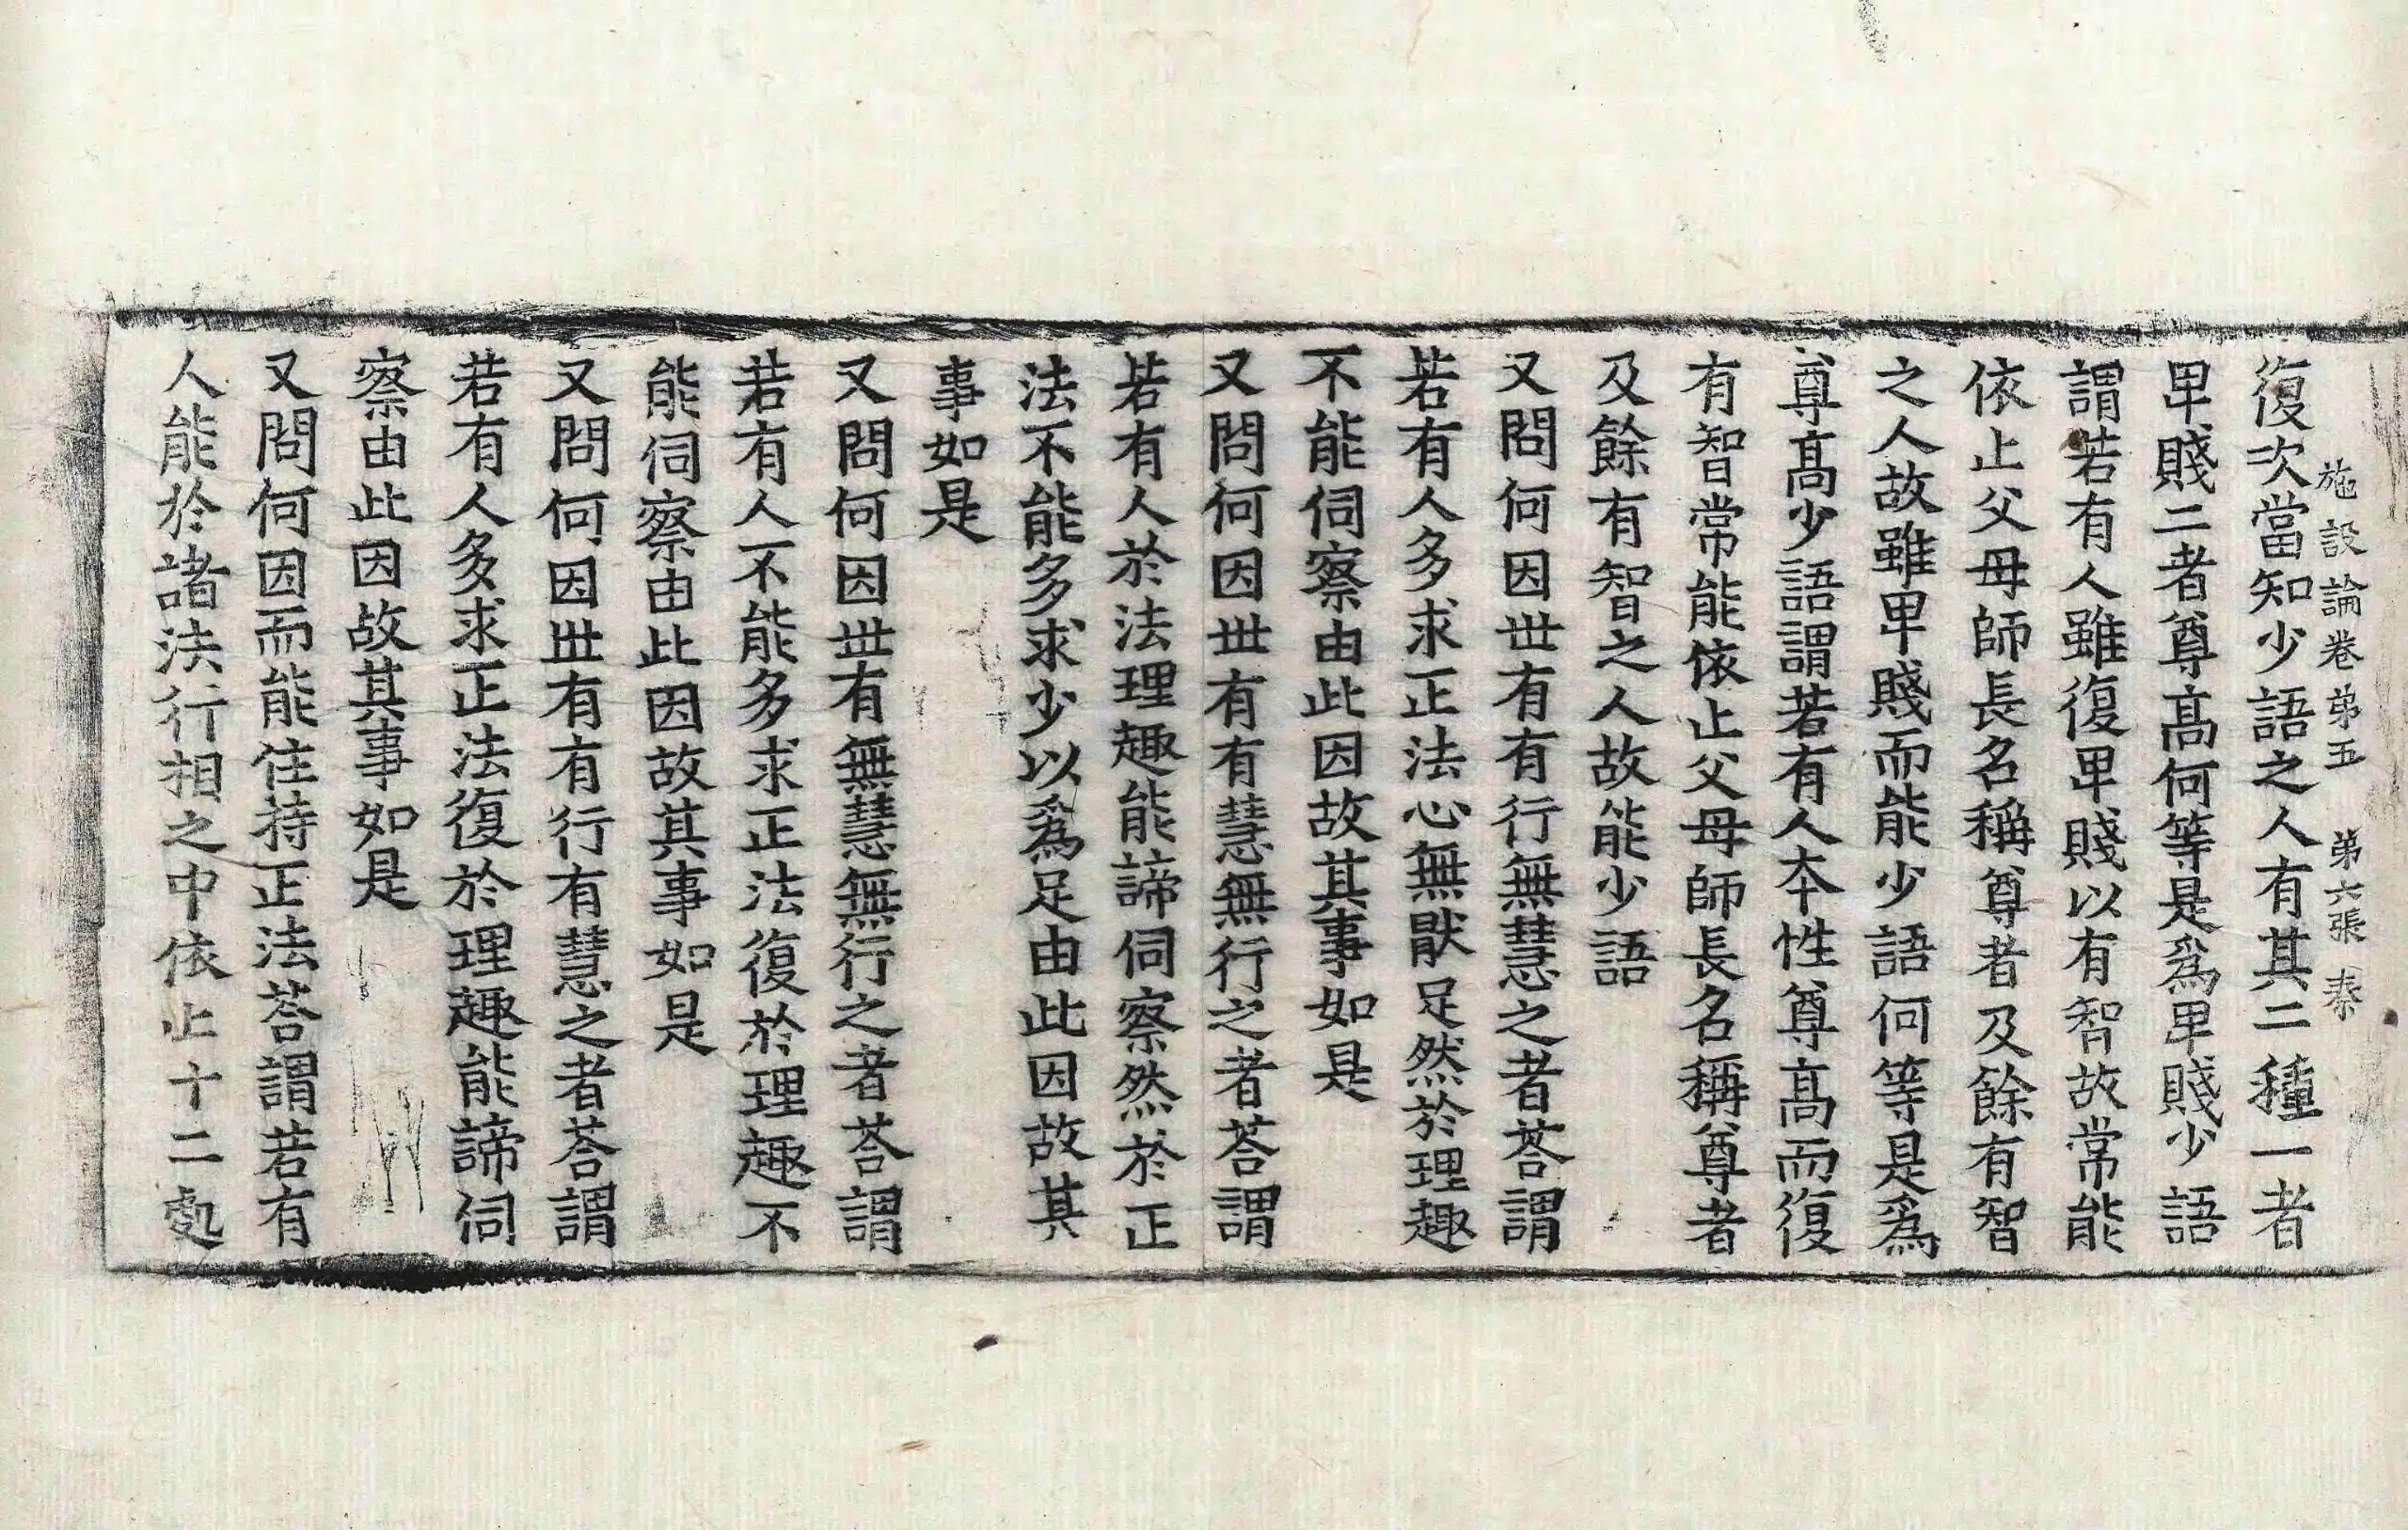 施設論卷第五　第六張　秦
復次當知少語之人有其二種一者
卑賤二者尊高何等是爲卑賤少語
謂若有人雖復卑賤以有智故常能
依止父母師長名稱尊者及餘有智
之人故雖卑賤而能少語何等是爲
尊高少語謂若有人本性尊高而復
有智常能依止父母師長名稱尊者
及餘有智之人故能少語
又問何因世有有行無慧之者荅謂
若有人多求正法心無猒足然於理趣
不能伺察由此因故其事如是
又問何因世有有慧無行之者荅謂
若有人於法理趣能諦伺察然於正
法不能多求少以爲足由此因故其
事如是
又問何因世有無慧無行之者荅謂
若有人不能多求正法復於理趣不
能伺察由此因故其事如是
又問何因世有有行有慧之者荅謂
若有人多求正法復於理趣能諦伺
察由此因故其事如是
又問何因而能住持正法荅謂若有
人能於諸法行相之中依止十二處